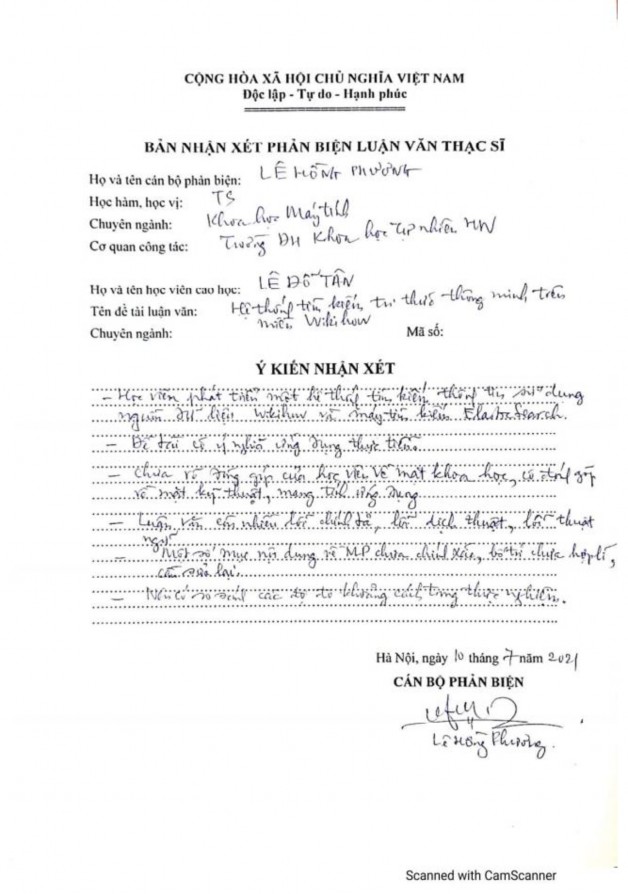 CỘNG HÒA XÃ HỘI CHỦ NGHĨA VIỆT NAM
Độc lập - Tự do - Hạnh phúc
BẢN NHẬN XÉT PHẢN BIỆN LUẬN VĂN THẠC SĨ
Họ và tên cán bộ phản biện: LÊ HỒNG PHƯƠNG
Học hàm, học vị: TS
Chuyên ngành: Khoa học Máy tính
Cơ quan công tác: Trường ĐH Khoa học Tự nhiên HN
Họ và tên học viên cao học: LÊ ĐỖ TÂN
Tên đề tài luận văn: Hệ thống tìm kiếm tri thức thông minh trên
miền Wikihow
Chuyên ngành: Mã số:
Ý KIẾN NHẬN XÉT
- Học viên phát triển một hệ thống tìm kiếm thông tin sử dụng
nguồn dữ liệu Wikihow và máy tìm kiếm ElasticSearch.
- Đề tài có ý nghĩa ứng dụng thực tiễn.
- Chưa rõ đóng góp của học viên về mặt khoa học, có đóng góp
về mặt kỹ thuật, mang tính ứng dụng
- Luận văn còn nhiều lỗi chính tả, lỗi dịch thuật, lỗi thuật
ngữ
- Một số mục nội dung về MP chưa chính xác, bố trí chưa hợp lí,
cần sửa lại.
- Nên có so sánh các độ đo khoảng cách trong thực nghiệm.
Hà Nội, ngày 10 tháng 7 năm 2021
CÁN BỘ PHẢN BIỆN
Lê Hồng Phương
Scanned with CamScanner